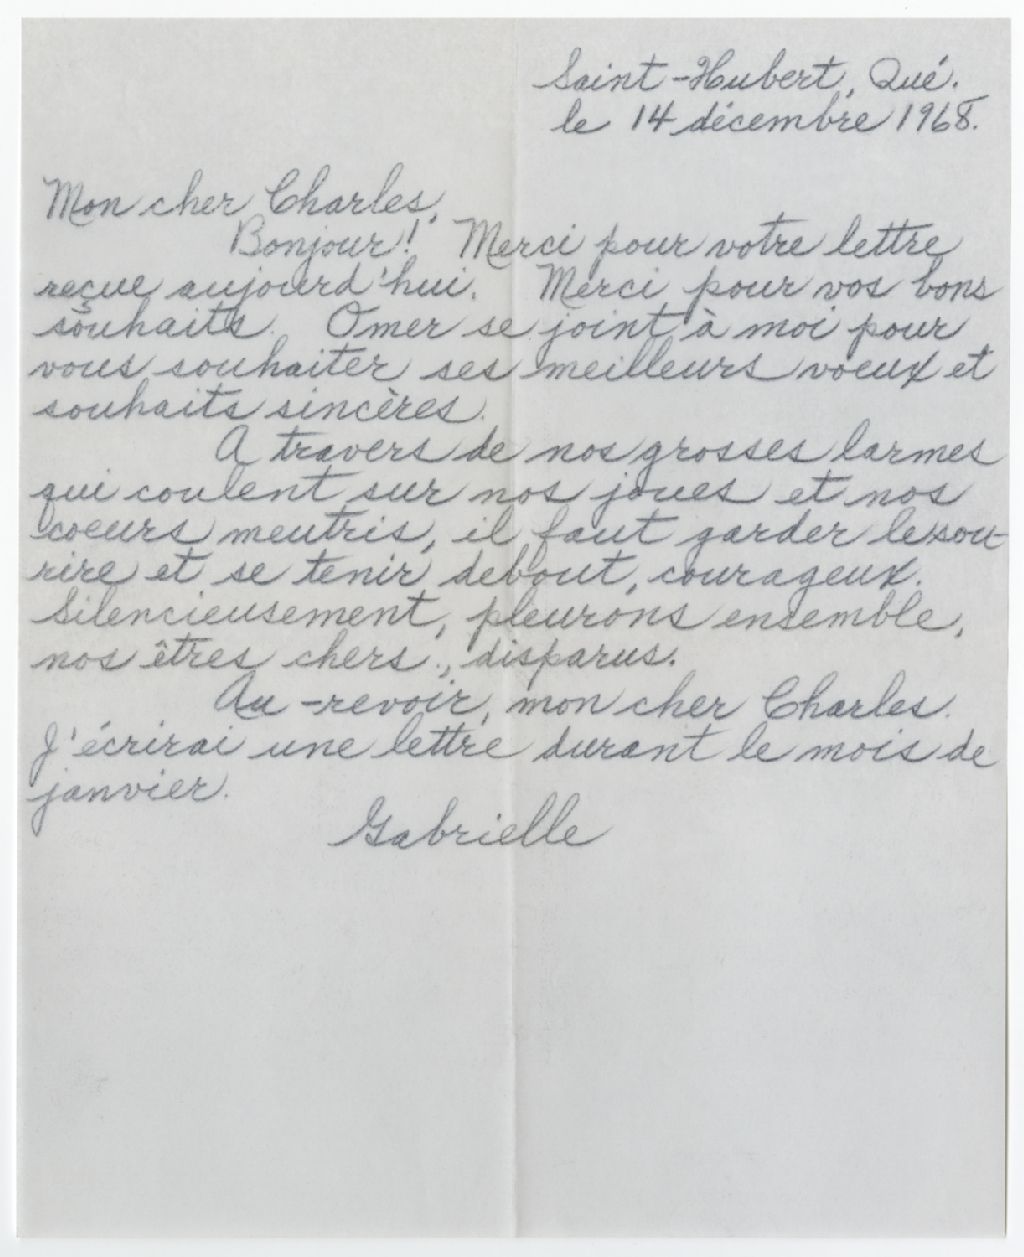 Saint-Hubert, Qué.
le 14 décembre 1968.
Mon cher Charles,
Bonjour! Merci pour votre lettre
reçue aujourd'hui. Merci pour vos bons
souhaits. Omer se joint à moi pour
vous souhaiter ses meilleurs voeux et
souhaits sincères.
A travers de nos grosses larmes
qui coulent sur nos joues et nos
coeurs meutris, il faut garder le sou-
rire et se tenir debout, courageux.
Silencieusement, pleurons ensemble,
nos êtres chers, disparus.
Au-revoir, mon cher Charles.
J'écrirai une lettre durant le mois de
janvier.
Gabrielle